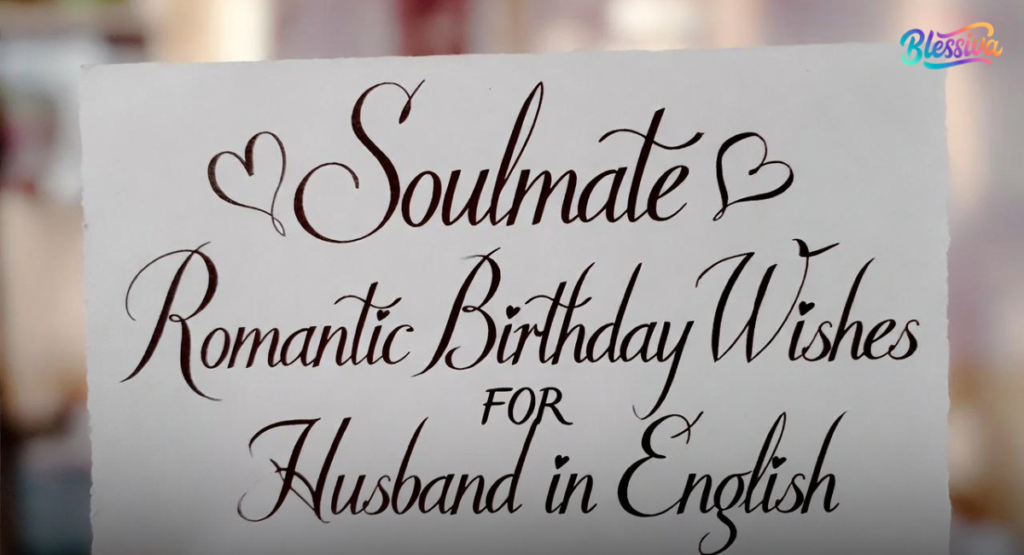 Blessiva
Soulmate
Romantic Birthday Wishes
FOR
Husband in English